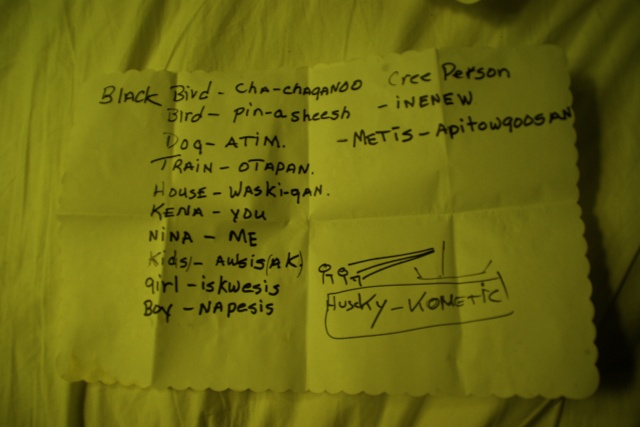 Black Bird - CHA-CHAQANOO
Bird - pin-a sheesh
Dog - ATIM.
TRAIN - OTAPAN.
HOUSE - WASKI-QAN.
KENA - YOU
NINA - ME
Kids/- AWSIS(AK)
girl - iskwesis
Boy - NAPESIS
Cree Person
- INENEW
- METIS - ApitowqoosAN
Huscky - KOMETIC